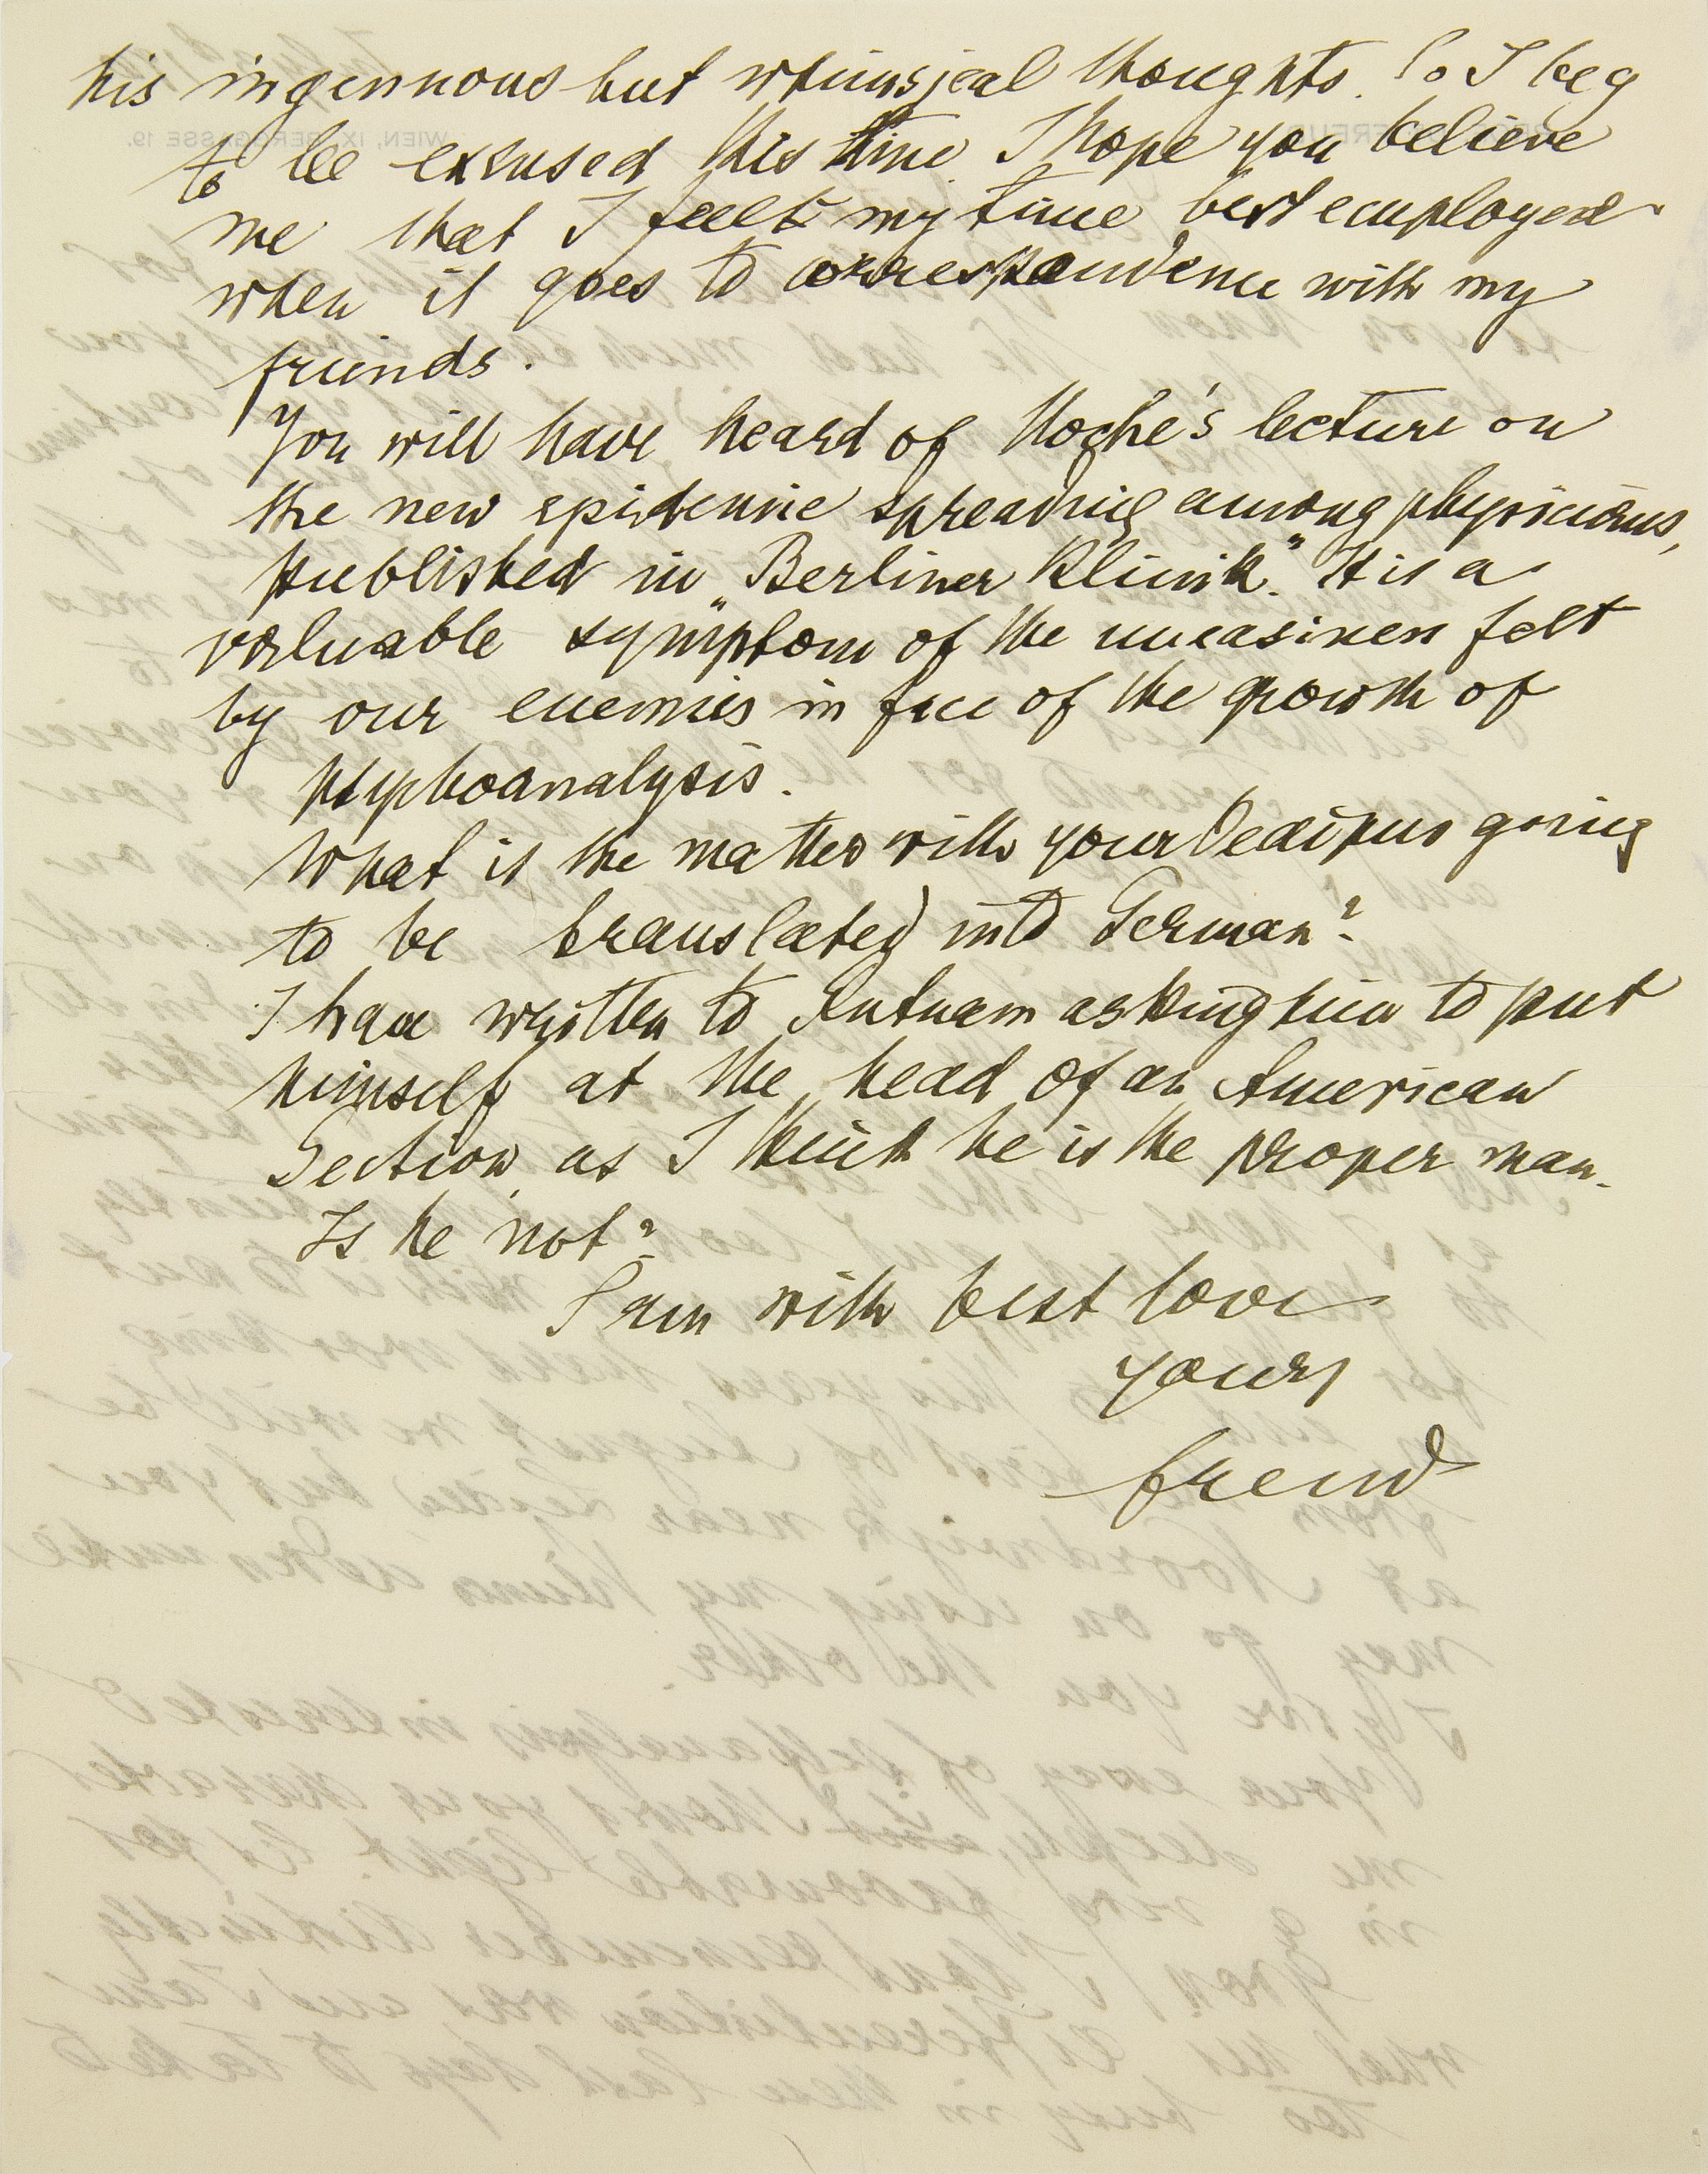 his ingennous but whimsical thoughts. So I beg
to be excused this time. I hope you believe
me that I feel my time best employed
when it goes to correspondence with my
friends.
You will have heard of Hoche's lecture on
the new epidemic spreading among physicians,
published in „Berliner Klinik". It is a
valuable symptom of the uneasiness felt
by our enemies in face of the growth of
psychoanalysis.
What is the matter with your Oedipus going
to be translated into German?
I have written to Putnam asking him to put
himself at the head of an American
Section, as I think he is the proper man.
Is he not?
I am with best love
yours
Freud